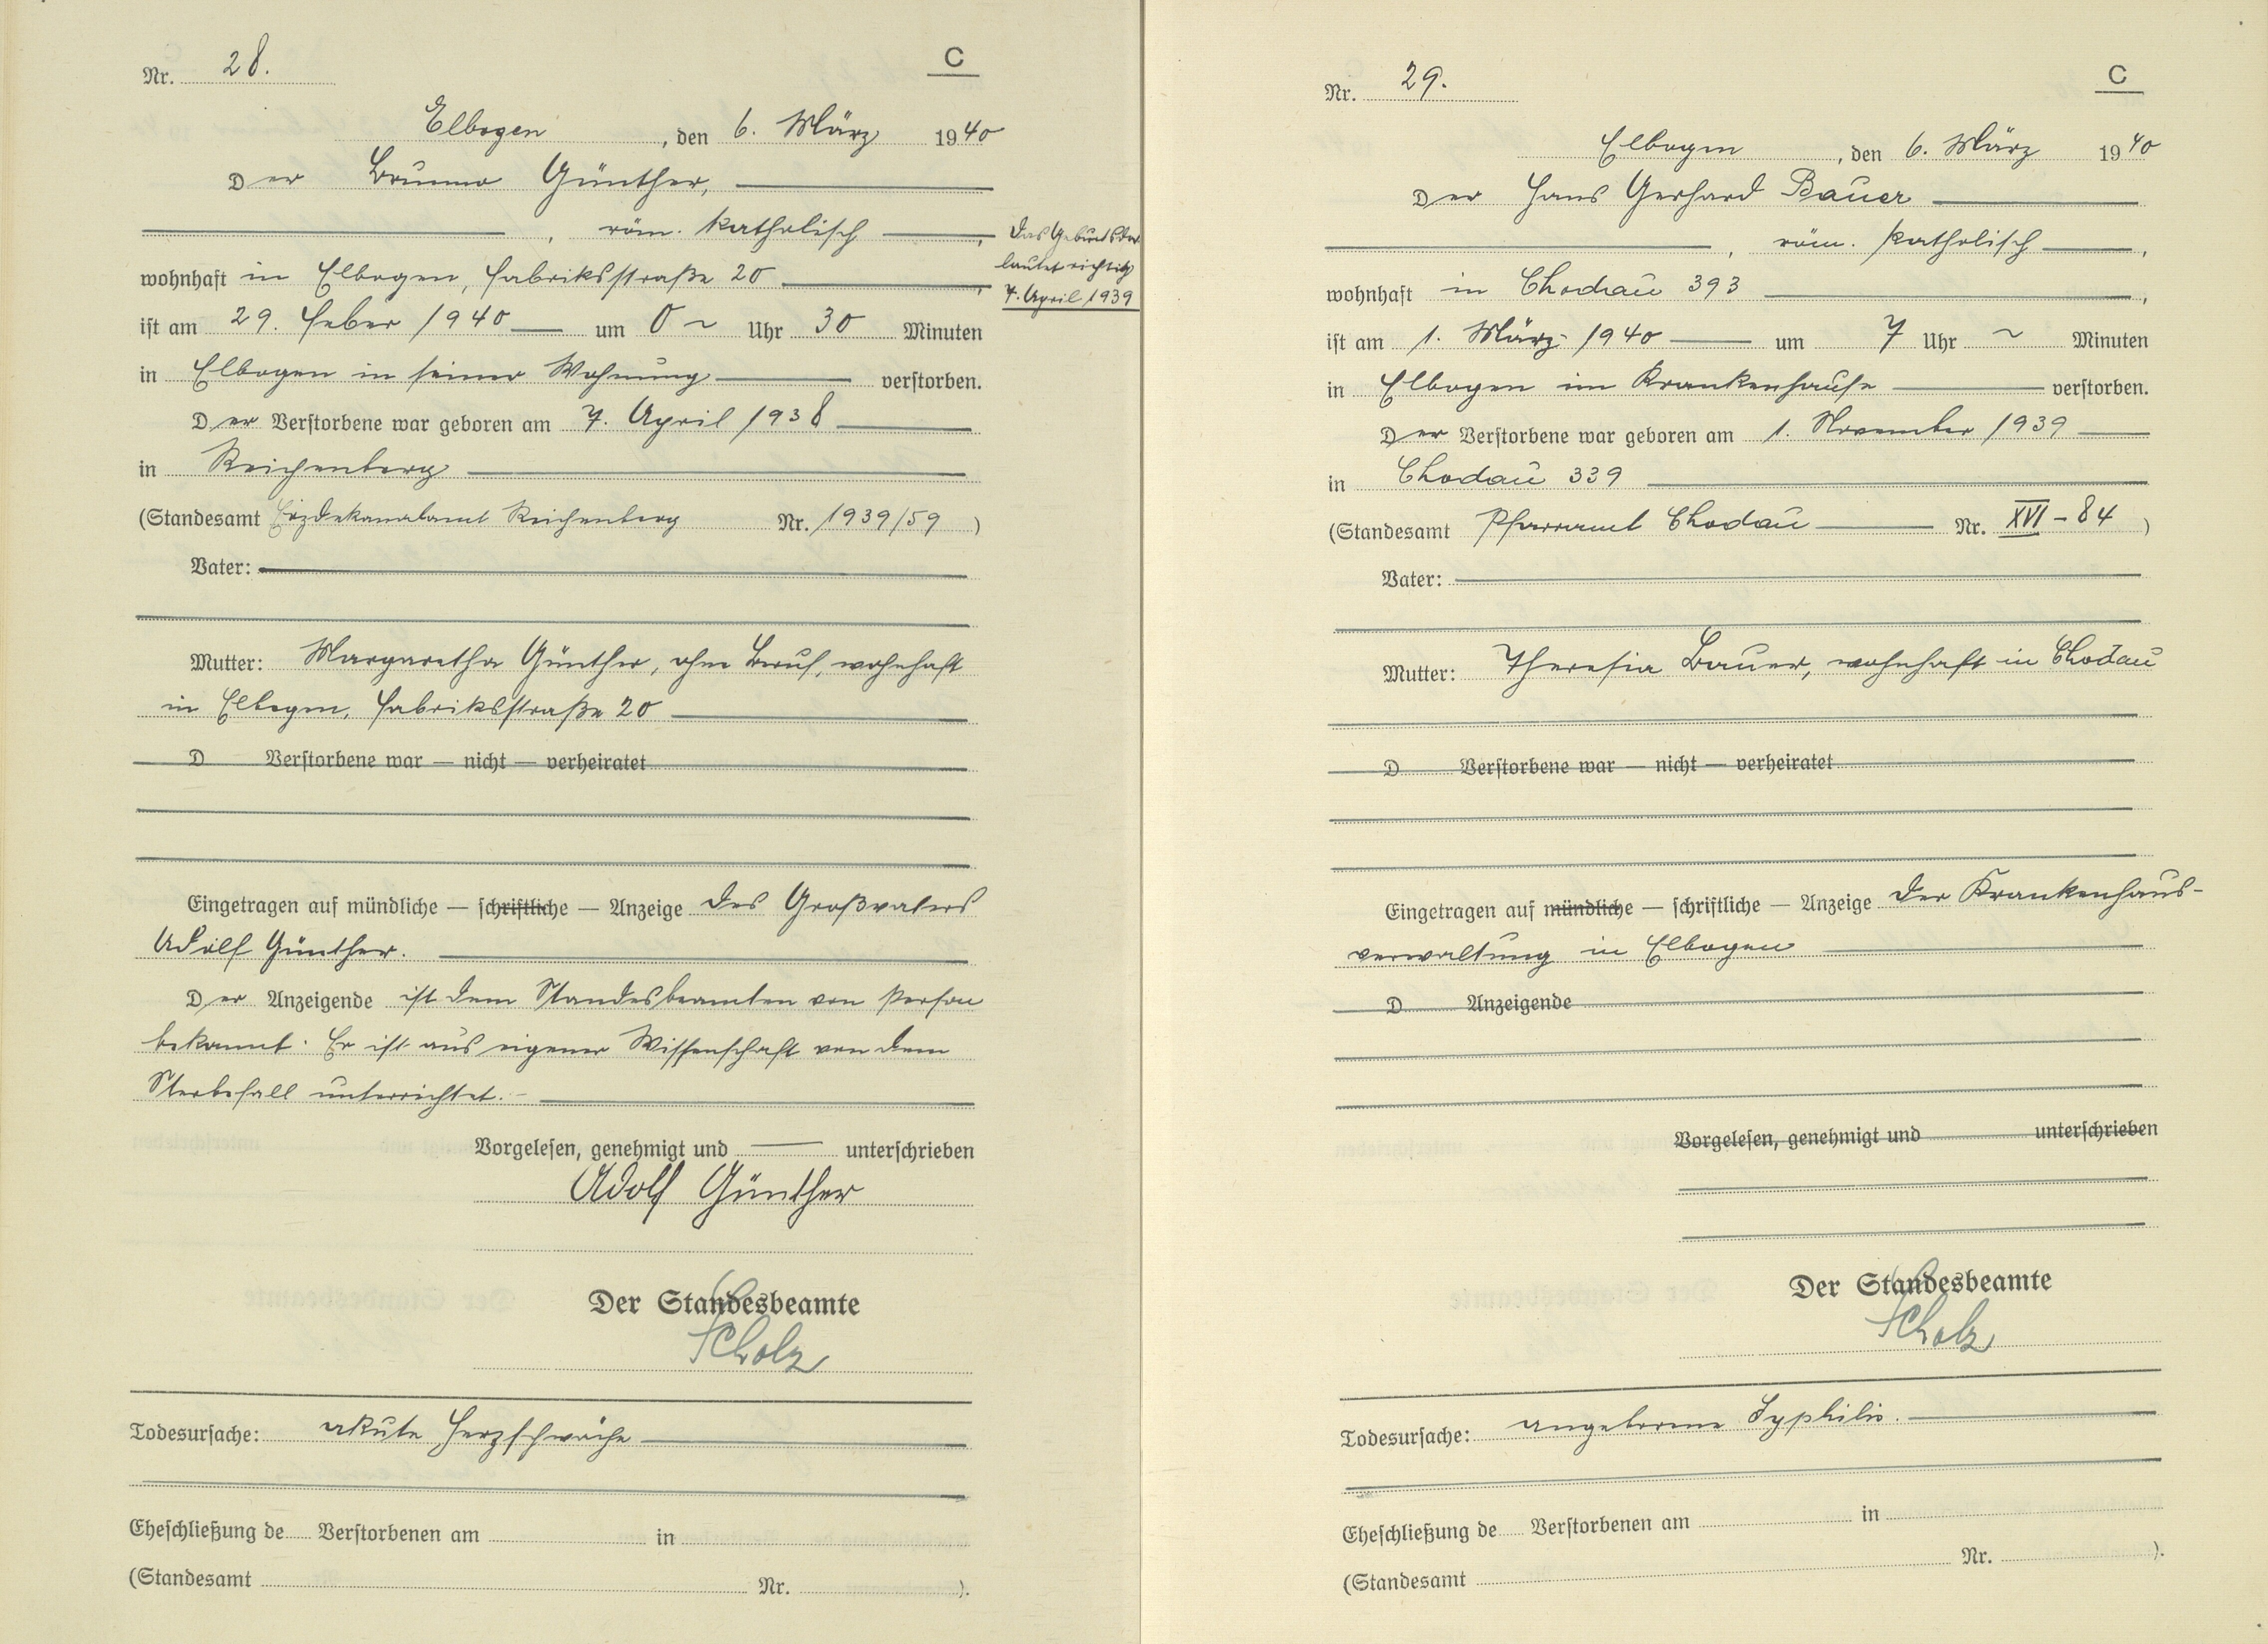 Nr. 28.
C
Elbogen, den 6. März 1940
Der Bruno Günther,
, röm. katholisch,
Das Geburtsdat
lautet richtig
7. April 1939
wohnhaft in Elbogen, Fabriksstraße 20,
ist am 29. Feber 1940 um 0 ~ Uhr 30 Minuten
in Elbogen in seiner Wohnung verstorben.
Der Verstorbene war geboren am 7. April 1938
in Reichenberg
(Standesamt Erzdekanalamt Reichenberg Nr. 1939/59)
Vater:
Mutter: Margaretha Günther, ohne Beruf, wohnhaft
in Elbogen, Fabriksstraße 20
D Verstorbene war — nicht — verheiratet
Eingetragen auf mündliche — schriftliche — Anzeige des Großvaters
Adolf Günther.
Der Anzeigende ist dem Standesbeamten von Person
bekannt. Er ist aus eigener Wissenschaft von dem
Sterbefall unterrichtet.-
Vorgelesen, genehmigt und unterschrieben
Adolf Günther
Der Standesbeamte
Scholz
Todesursache: akute Herzschwäche
Eheschließung de Verstorbenen am in
(Standesamt Nr. ).
Nr. 29.
C
Elbogen, den 6. März 1940
Der Hans Gerhard Bauer
, röm. katholisch,
wohnhaft in Chodau 393,
ist am 1. März 1940 um 7 Uhr ~ Minuten
in Elbogen im Krankenhause verstorben.
Der Verstorbene war geboren am 1. November 1939
in Chodau 339
(Standesamt Pfarramt Chodau Nr. XVI - 84)
Vater:
Mutter: Theresia Bauer, wohnhaft in Chodau
D Verstorbene war — nicht — verheiratet
Eingetragen auf mündliche — schriftliche — Anzeige der Krankenhaus-
verwaltung in Elbogen
D Anzeigende
Vorgelesen, genehmigt und unterschrieben
Der Standesbeamte
Scholz
Todesursache: angeborene Syphilis.
Eheschließung de Verstorbenen am in
(Standesamt Nr. ).